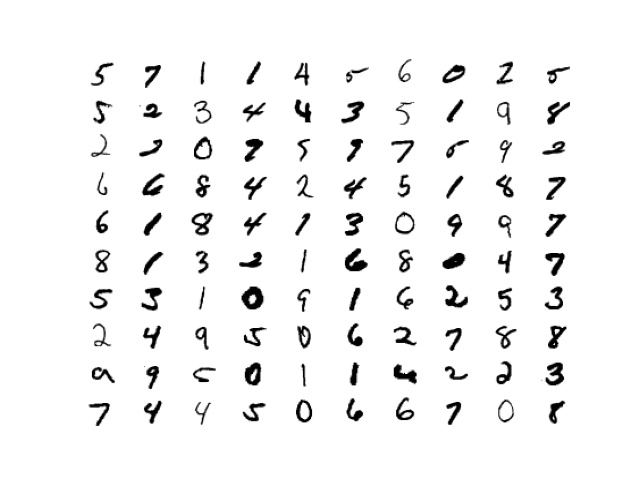 5 7 1 1 4 5 6 0 2 5
5 2 3 4 4 3 5 1 9 8
2 2 0 9 5 9 7 5 9 2
6 6 8 4 2 4 5 1 8 7
6 1 8 4 1 3 0 9 9 7
8 1 3 2 1 6 8 0 4 7
5 3 1 0 9 1 6 2 5 3
2 4 9 5 0 6 2 7 8 8
9 9 5 0 1 1 4 2 2 3
7 4 4 5 0 6 6 7 0 8